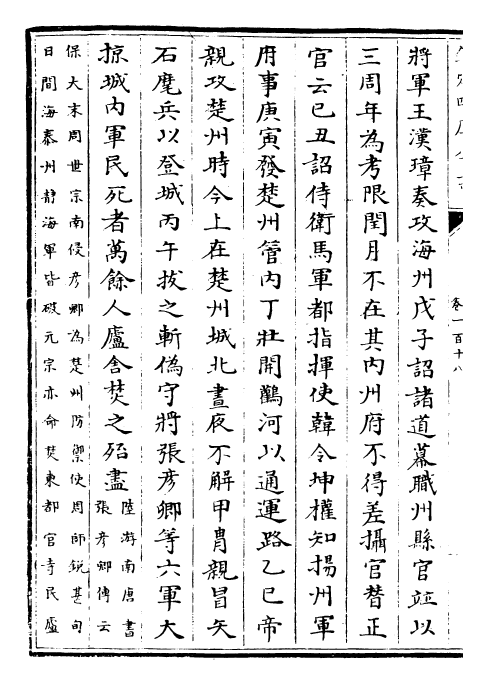 將軍王漢璋奏攻海州戊子詔諸道幕職州縣官並以
三周年為考限閏月不在其內州府不得差攝官替正
官云己丑詔侍衛馬軍都指揮使韓令坤權知揚州軍
府事庚寅發楚州管內丁壯開鸛河以通運路乙巳帝
親攻楚州時今上在楚州城北晝夜不解甲冑親冒矢
石麾兵以登城丙午拔之斬偽守將張彥卿等六軍大
掠城內軍民死者萬餘人廬舍焚之殆盡陸游南唐書
張彥卿傳云
保大末周世宗南侵彥卿為楚州防禦使周師銳甚旬
日間海泰州靜海軍皆破元宗亦命焚東都官寺民廬
卷一百十八